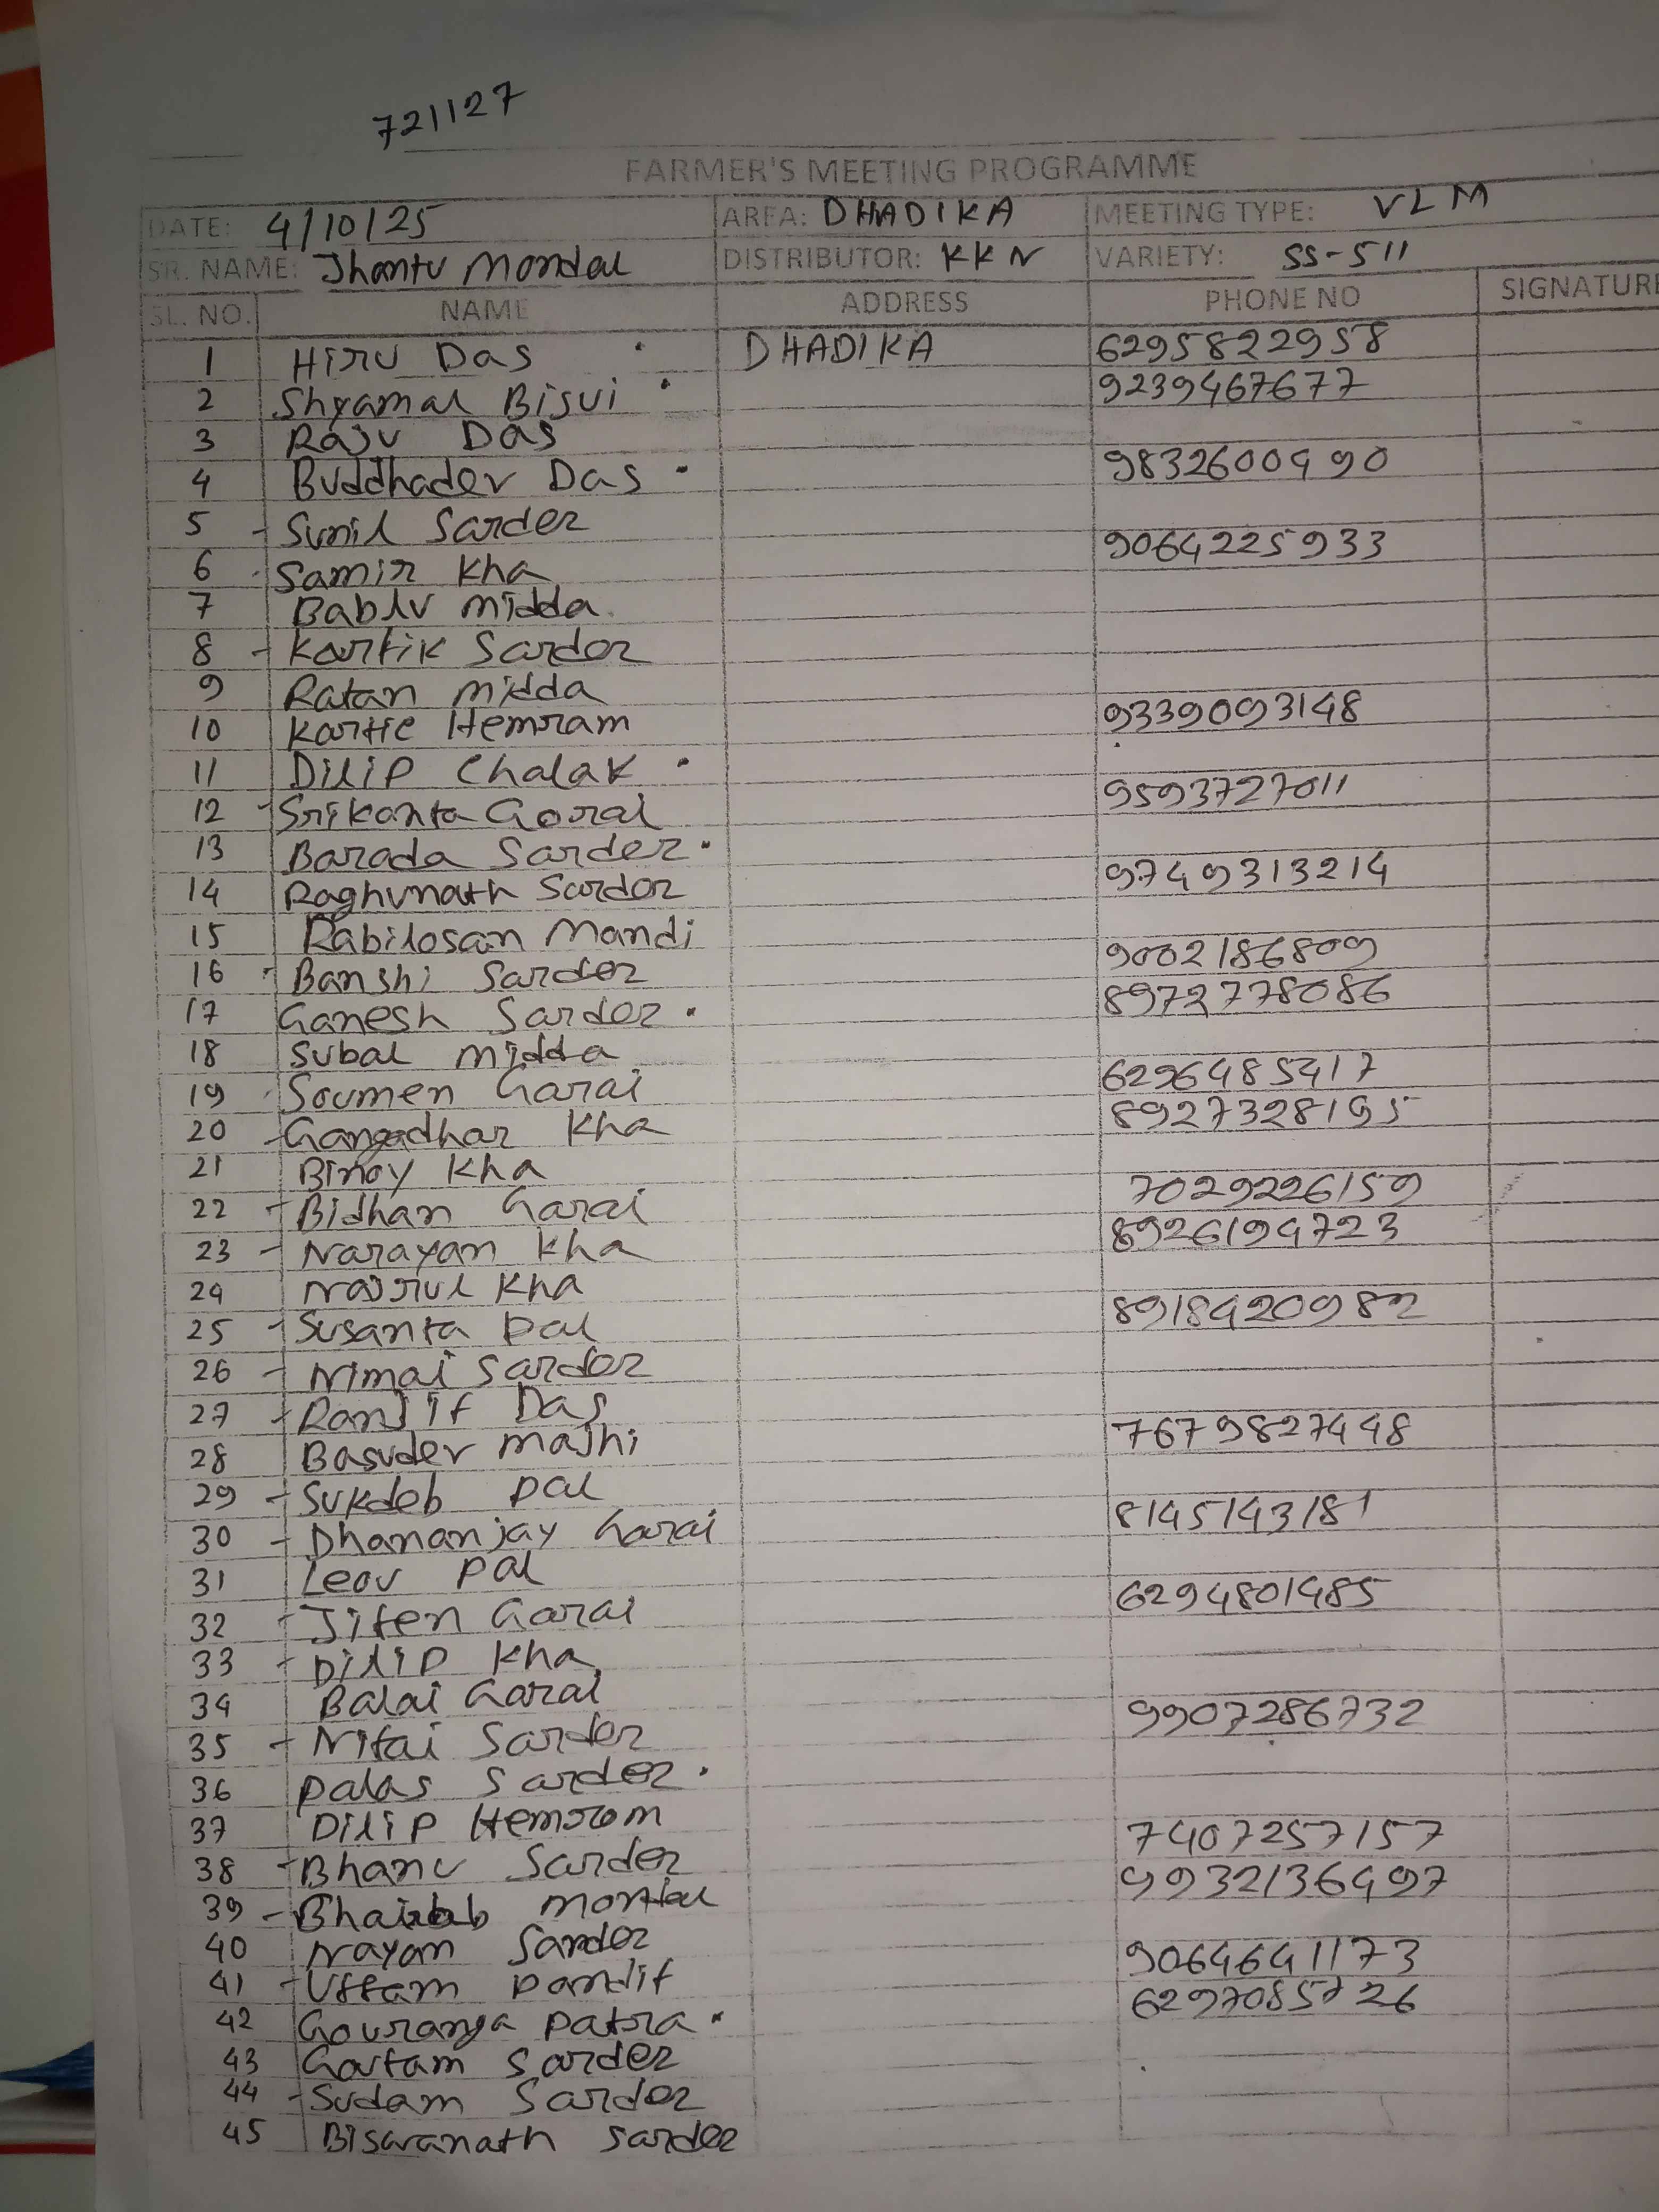 721127
FARMER'S MEETING PROGRAMME
DATE: 4/10/25 AREA: DHADIKA MEETING TYPE: VLM
SR. NAME: Jhantu Mondal DISTRIBUTOR: KKN VARIETY: SS-511
SL. NO. NAME ADDRESS PHONE NO SIGNATURE
1 Hiru Das DHADIKA 6295822958
2 Shyamal Bisui 9239467677
3 Raju Das
4 Buddhadev Das 9832600490
5 Sunil Sarder
6 Samir Kha 9064225933
7 Bablu Midda
8 Kartik Sarder
9 Ratan Midda
10 Kartic Hemram 9339093148
11 Dilip Chalak
12 Srikanta Gorai 9593727011
13 Barada Sarder
14 Raghunath Sarder 9749313214
15 Rabilosan Mandi
16 Banshi Sarder 9002186809
17 Ganesh Sarder 8972778086
18 Subal Midda
19 Soumen Garai 6296485417
20 Gangadhar Kha 8927328195
21 Binoy Kha
22 Bidhan Garai 7029226159
23 Narayan Kha 8926194723
24 Najrul Kha
25 Susanta Pal 8918420982
26 Nimai Sarder
27 Ranjit Das
28 Basudev Majhi 7679827448
29 Sukdeb Pal
30 Dhananjay Garai 8145143181
31 Leou Pal
32 Jiten Garai 6294801485
33 Dilip Kha
34 Balai Garai
35 Nitai Sarder 9907286732
36 Palas Sarder
37 Dilip Hemrom
38 Bhanu Sarder 7407257157
39 Bhairab Mondal 9932136497
40 Nayan Sarder
41 Uttam Pandit 9064641173
42 Gouranga Patra 6297085726
43 Goutam Sarder
44 Sudam Sarder
45 Biswanath Sarder